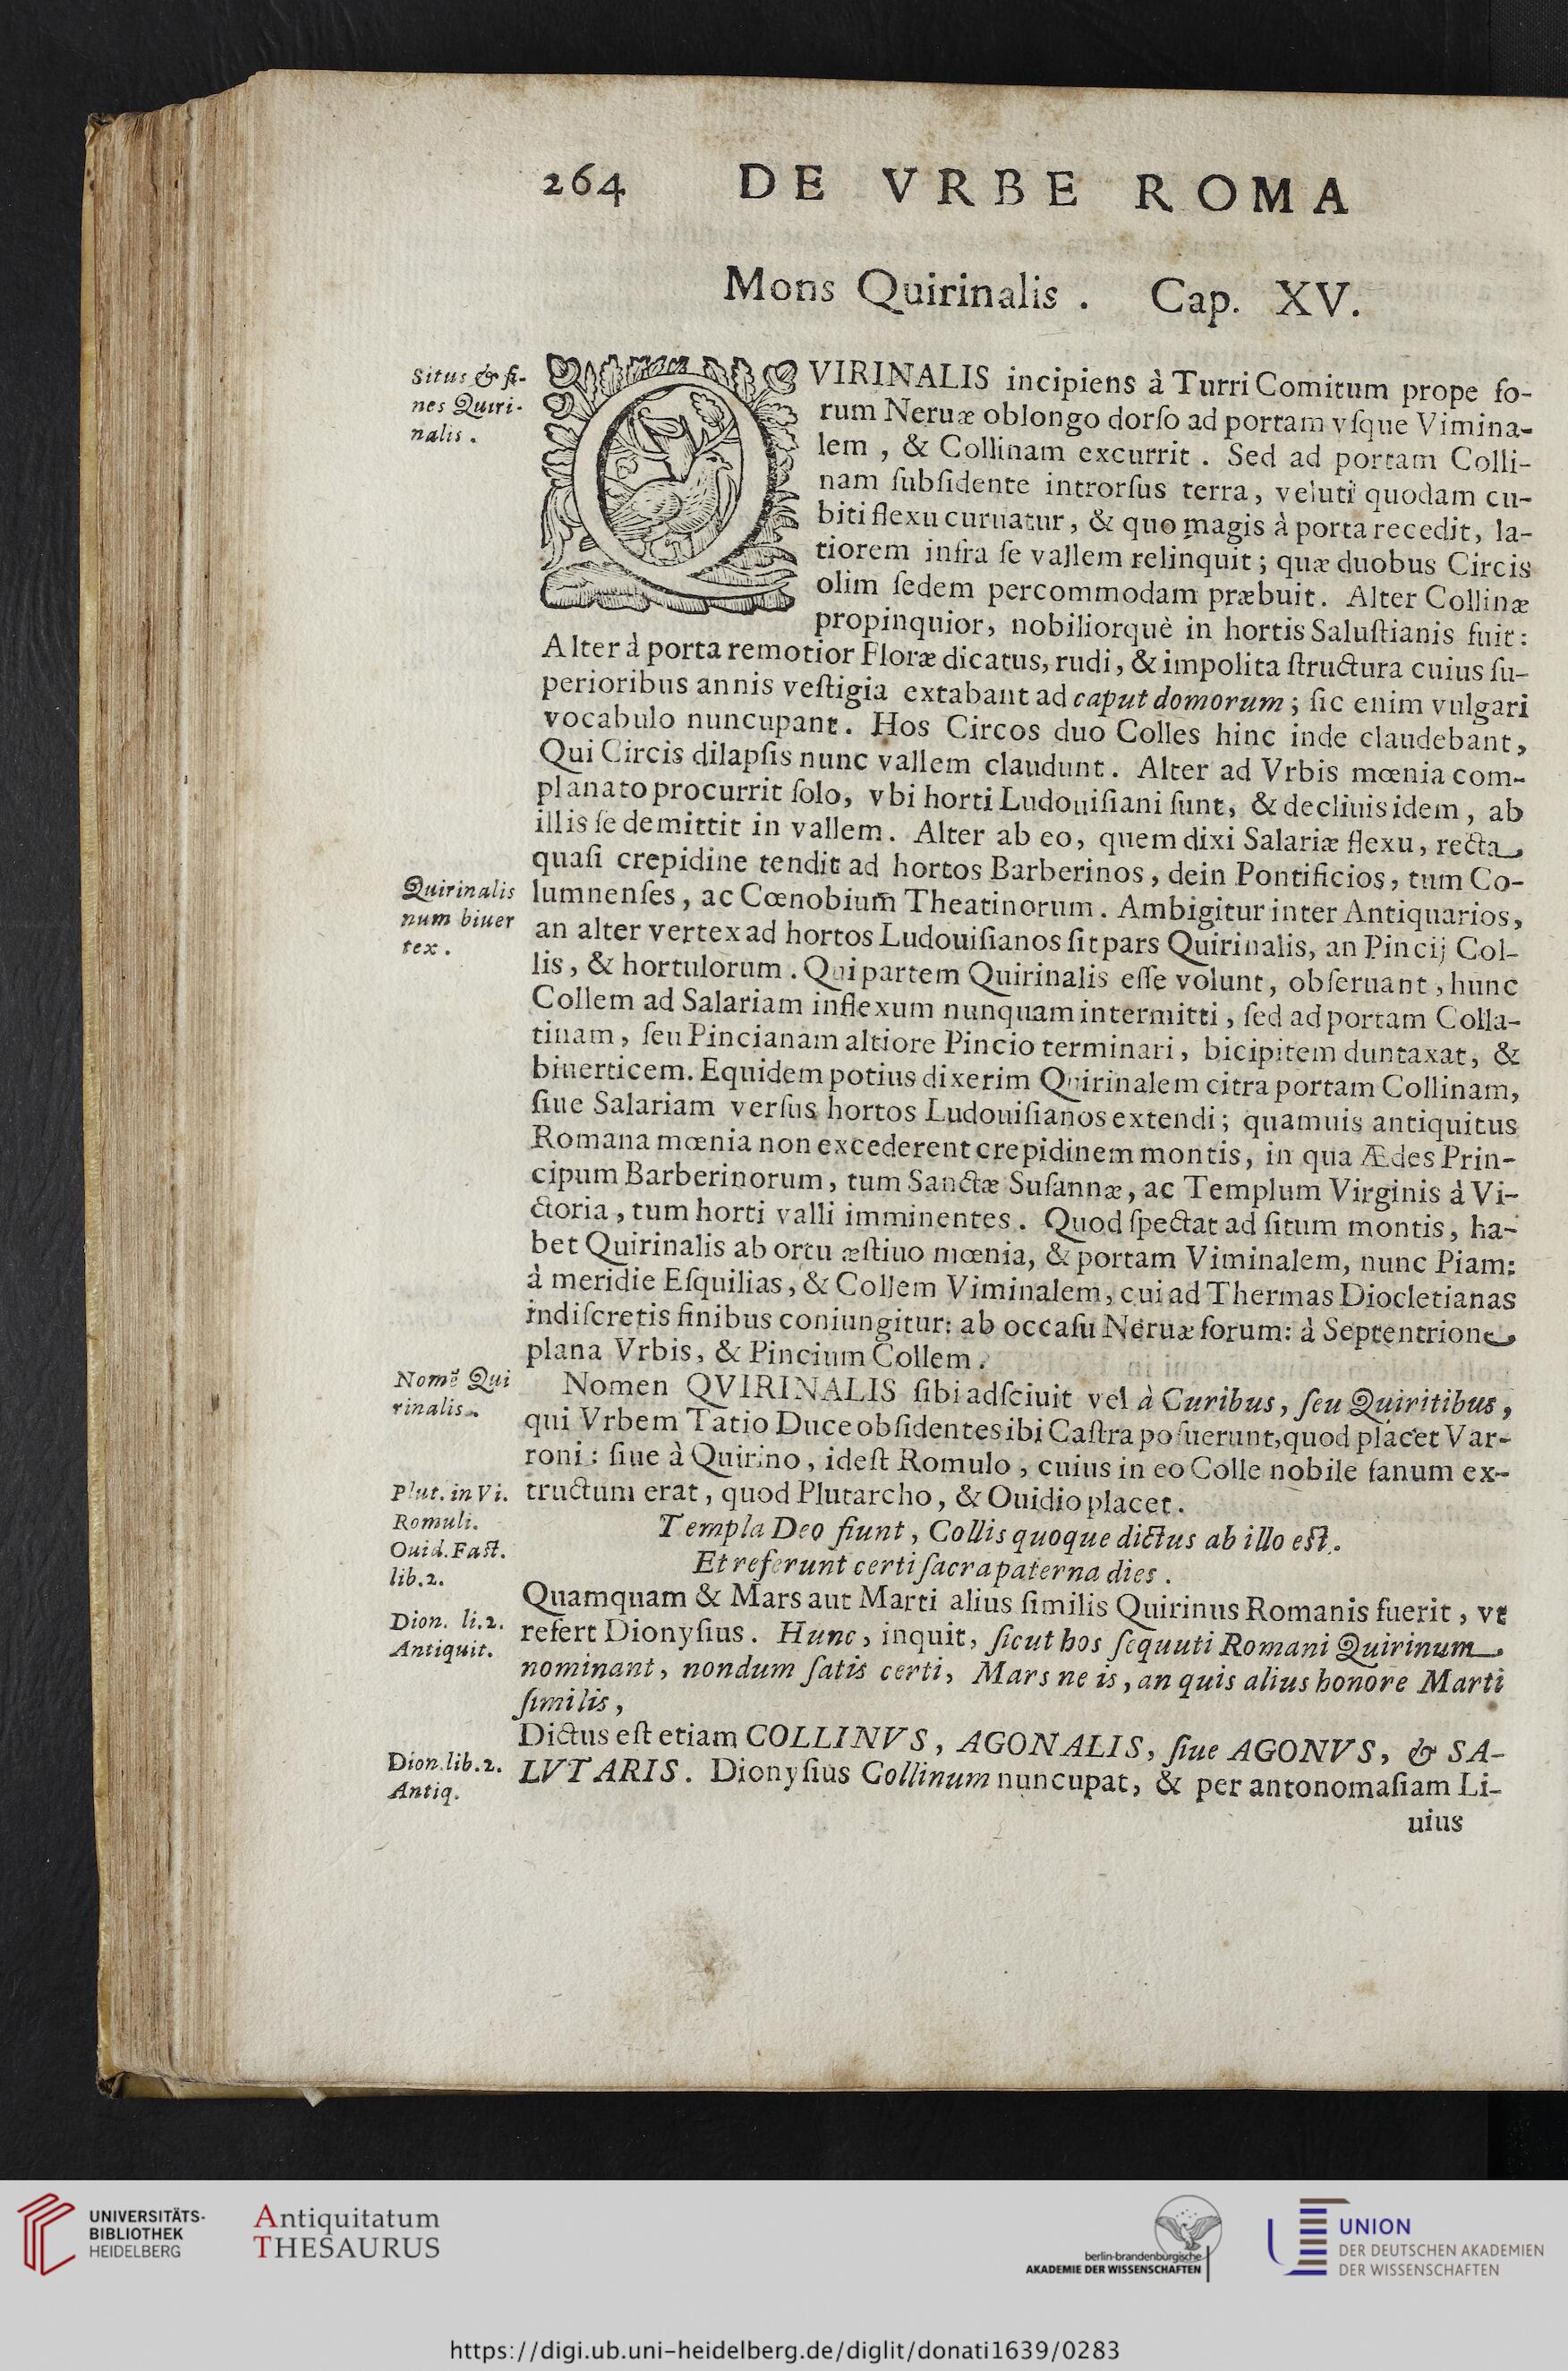 264 DE VRBE ROMA
Mons Quirinalis . Cap. XV.
Situs & fi-
nes Quiri-
nalis .
QVIRINALIS incipiens à Turri Comitum prope fo-
rum Neruæ oblongo dorſo ad portam vſque Vimina-
lem , & Collinam excurrit . Sed ad portam Colli-
nam ſubſidente introrſus terra, veluti quodam cu-
biti flexu curuatur, & quo magis à porta recedit, la-
tiorem infra ſe vallem relinquit; quæ duobus Circis
olim ſedem percommodam præbuit. Alter Collinæ
propinquior, nobiliorquè in hortis Saluſtianis fuit:
Alter à porta remotior Floræ dicatus, rudi, & impolita ſtructura cuius ſu-
perioribus annis veſtigia extabant ad caput domorum; ſic enim vulgari
vocabulo nuncupant. Hos Circos duo Colles hinc inde claudebant,
Qui Circis dilapſis nunc vallem claudunt. Alter ad Vrbis mœnia com-
planato procurrit ſolo, vbi horti Ludouiſiani ſunt, & decliuis idem, ab
illis ſe demittit in vallem. Alter ab eo, quem dixi Salariæ flexu, recta
quaſi crepidine tendit ad hortos Barberinos, dein Pontificios, tum Co-
Quirinalis
num biuer
tex .
lumnenſes, ac Cœnobium Theatinorum. Ambigitur inter Antiquarios,
an alter vertex ad hortos Ludouiſianos ſit pars Quirinalis, an Pincij Col-
lis, & hortulorum . Qui partem Quirinalis eſſe volunt, obſeruant, hunc
Collem ad Salariam inflexum nunquam intermitti, ſed ad portam Colla-
tinam, ſeu Pincianam altiore Pincio terminari, bicipitem duntaxat, &
biuerticem. Equidem potius dixerim Quirinalem citra portam Collinam,
ſiue Salariam verſus hortos Ludouiſianos extendi; quamuis antiquitus
Romana mœnia non excederent crepidinem montis, in qua Ædes Prin-
cipum Barberinorum, tum Sanctæ Suſannæ, ac Templum Virginis à Vi-
ctoria, tum horti valli imminentes. Quod ſpectat ad ſitum montis, ha-
bet Quirinalis ab ortu æſtiuo mœnia, & portam Viminalem, nunc Piam:
à meridie Eſquilias, & Collem Viminalem, cui ad Thermas Diocletianas
indiſcretis finibus coniungitur: ab occaſu Neruæ forum: à Septentrione
plana Vrbis, & Pincium Collem.
Nomẽ Qui
rinalis.
Nomen QVIRINALIS ſibi adſciuit vel à Curibus, ſeu Quiritibus,
qui Vrbem Tatio Duce obſidentes ibi Caſtra poſuerunt, quod placet Var-
roni: ſiue à Quirino, ideſt Romulo, cuius in eo Colle nobile fanum ex-
Plut. in Vi.
Romuli.
Ouid. Faſt.
lib.2.
tructum erat, quod Plutarcho, & Ouidio placet.
Templa Deo fiunt, Collis quoque dictus ab illo eſt.
Et referunt certi ſacra paterna dies.
Quamquam & Mars aut Marti alius ſimilis Quirinus Romanis fuerit, vt
Dion. li.2.
Antiquit.
refert Dionyſius. Hunc, inquit, ſicut hos ſequuti Romani Quirinum
nominant, nondum ſatis certi, Mars ne is, an quis alius honore Marti
ſimilis,
Dictus eſt etiam COLLINVS, AGONALIS, ſiue AGONVS, & SA-
Dion.lib.2.
Antiq.
LVTARIS. Dionyſius Collinum nuncupat, & per antonomaſiam Li-
uius
UNIVERSITÄTS-
BIBLIOTHEK
HEIDELBERG
Antiquitatum
THESAURUS
berlin-brandenburgische
AKADEMIE DER WISSENSCHAFTEN
UNION
DER DEUTSCHEN AKADEMIEN
DER WISSENSCHAFTEN
https://digi.ub.uni-heidelberg.de/diglit/donati1639/0283